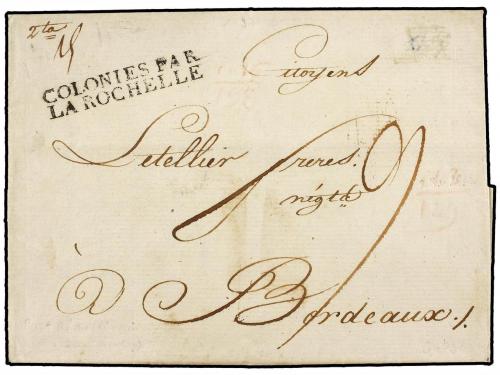 2ta
COLONIES PAR
LA ROCHELLE
Citoyens
Letellier freres.
négts
à Bordeaux./.